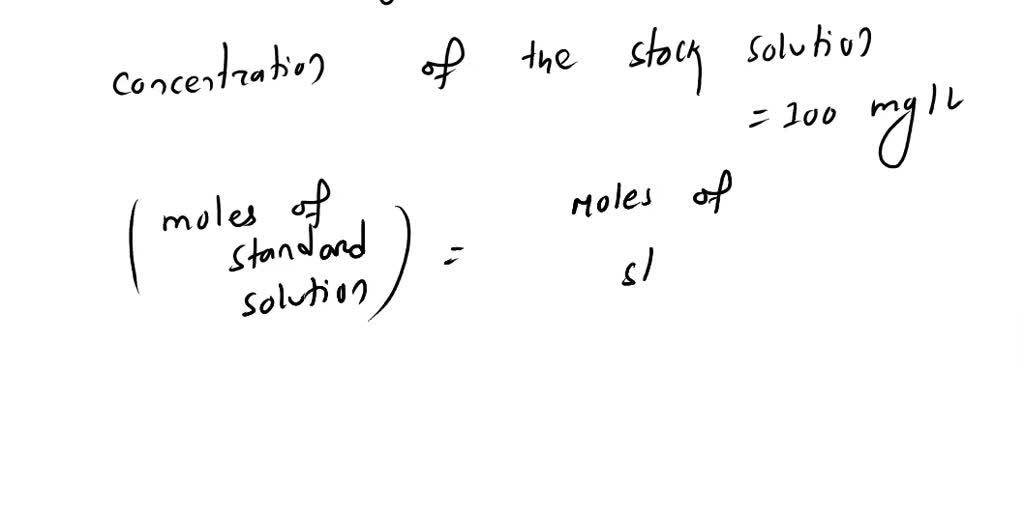 concentration of the stock solution
= 100 mg/L
(moles of standard solution) = moles of
st